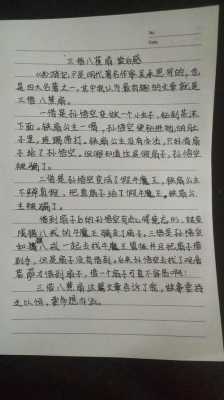 三借芭蕉扇 读后感
《西游记》是明代著名作家吴承恩写的，也
是四大名著之一。其中我认为最有趣的文章就是
三借芭蕉扇。
一借是孙悟空变做一个小虫子，钻到茶沫
下面。铁扇公主一喝，孙悟空便钻进她的肚
子里，连踢带打。铁扇公主没有办法，只好将扇
子给了孙悟空。但哪知道这是假扇子，孙悟空
被骗了。
二借是孙悟空变成了假牛魔王，铁扇公主
不辨真假，把真扇子给了假牛魔王。铁扇公
主被骗了。
借到扇子的孙悟空
猪八戒的牛魔王骗走了扇子。三借是孙悟空
和猪八戒一起去找牛魔王
到手，但是扇子没有借到。后来孙悟空去找了观音
才借到扇子，借一个扇子可真不容易啊！
三借芭蕉扇这篇文章告诉了我，做事要持
之以恒，